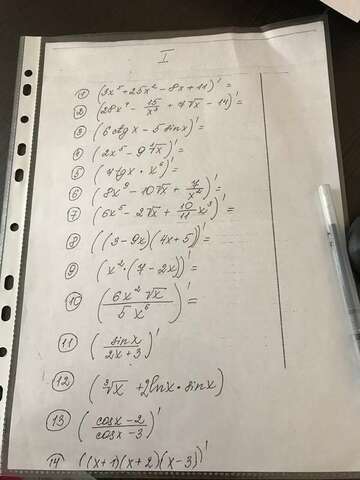 I
1 (3x⁵+25x²-8x+11)'=
2 (28x⁴ - 15/x³ + 7√x - 14)'=
3 (6ctgx - 5sinx)'=
4 (2x⁵ - 9∜x)'=
5 (7tgx · x⁶)'=
6 (8x⁹ - 10√x + 7/x⁴)'=
7 (6x⁵ - 2√x + 10/11 x³)'=
8 ((3-9x)(4x+5))'=
9 (x²·(7-2x))'=
10 (6x²√x / 5x⁶)'=
11 (sinx / 2x+3)'
12 (∛x + 2lnx·sinx)
13 (cosx-2 / cosx-3)'
14 ((x+1)(x+2)(x-3))'